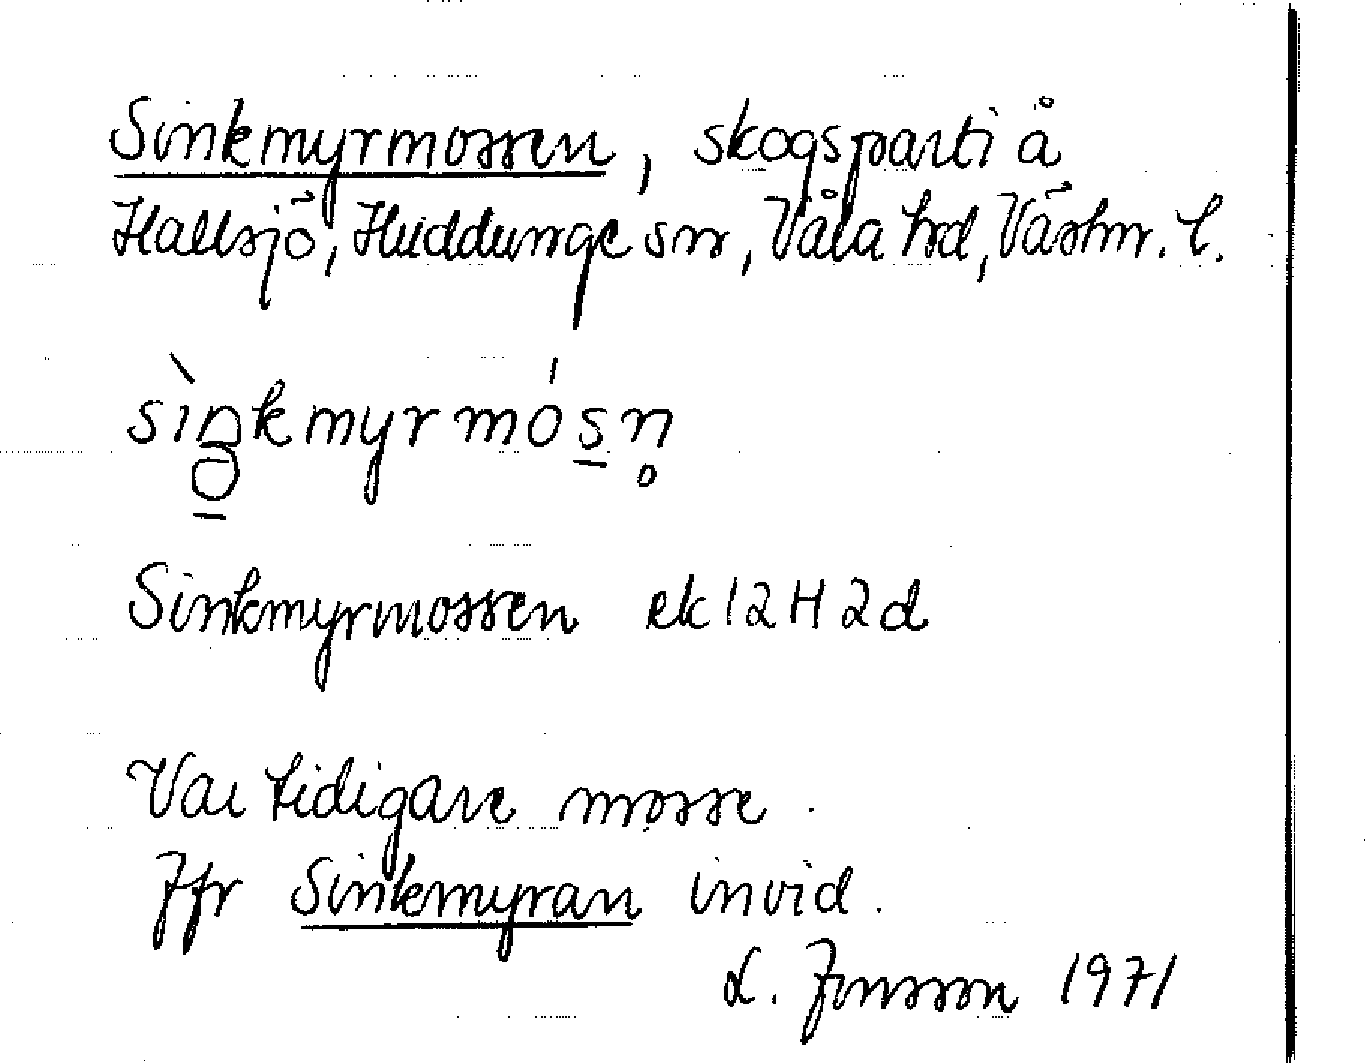 Sinkmyrmossen, skogsparti å
Hallsjö, Huddunge sn, Våla hd, Västm. l.
sìŋkmyrmósn̥
Sinkmyrmossen ek 12H2d
Var tidigare mosse.
Jfr Sinkmyran invid.
L. Jonsson 1971